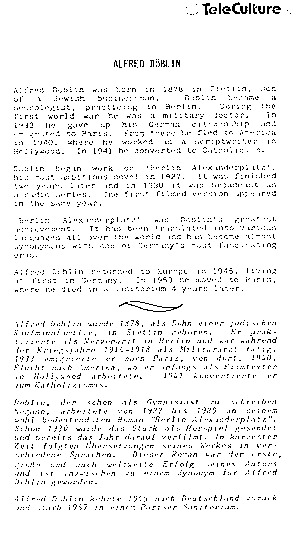 TeleCulture
ALFRED DÖBLIN
Alfred Döblin was born in 1878 in Stettin, son
of a Jewish businessman. Döblin became a
neurologist, practicing in Berlin. During the
first world war he was a military doctor. In
1933 he gave up his German citizenship and
emigrated to Paris. From there he fled to America
in 1940, where he worked as a scriptwriter in
Hollywood. In 1941 he converted to Catholicism.
Döblin began work on "Berlin Alexanderplatz",
his best-selling novel in 1927. It was finished
two years later and in 1930 it was broadcast as
a radio series. The first filmed version appeared
in the same year.
"Berlin Alexanderplatz" was Döblin's greatest
achievement. It has been translated into various
languages all over the world and has become almost
synonymous with one of Germany's most fascinating
eras.
Alfred Döblin returned to Europe in 1945, living
at first in Germany. In 1953 he moved to Paris,
where he died in a sanitorium 4 years later.
Alfred Döblin wurde 1878, als Sohn einer jüdischen
Kaufmannsfamilie, in Stettin geboren. Er prak-
tizierte als Nervenarzt in Berlin und war während
der Kriegsjahre 1914-1918 als Militärarzt tätig.
1933 emigrierte er nach Paris, von dort, 1940,
Flucht nach Amerika, wo er anfangs als Filmtexter
in Hollywood arbeitete. 1941 konvertierte er
zum Katholizismus.
Döblin, der schon als Gymnasiast zu schreiben
begann, arbeitete von 1927 bis 1929 an seinem
wohl bedeutendsten Roman "Berlin Alexanderplatz".
Schon 1930 wurde das Stück als Hörspiel gesendet
und bereits das Jahr darauf verfilmt. In kürzester
Zeit folgten Übersetzungen seines Werkes in ver-
schiedene Sprachen. Dieser Roman war der erste,
große und auch weltweite Erfolg seines Autors
und ist inzwischen zu einem Synonym für Alfred
Döblin geworden.
Alfred Döblin kehrte 1945 nach Deutschland zurück
und starb 1957 in einem Pariser Sanitorium.